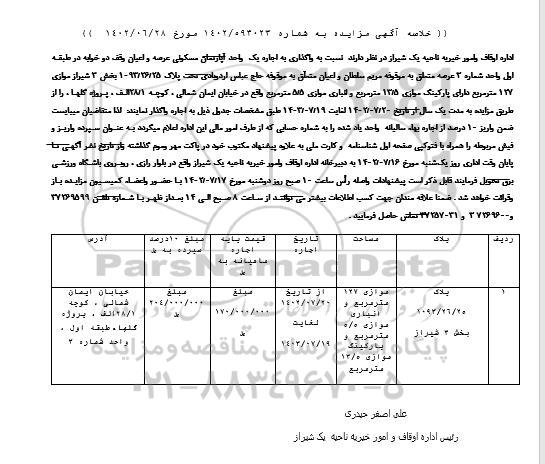 (( خلاصه آگهی مزایده به شماره ۱۴۰۲/۵۹۳۰۲۳ مورخ ۱۴۰۲/۰۶/۲۸ ))
اداره اوقاف وامور خیریه ناحیه یک شیراز در نظر دارند نسبت به واگذاری به اجاره یک واحد آپارتمان مسکونی عرصه و اعیان وقف دو خوابه در طبقه
اول واحد شماره ۳ عرصه متعلق به موقوفه مریم سلطان و اعیان متعلق به موقوفه حاج عباس اردوبادی تحت پلاک ۱۰۹۳/۲۶/۲۵ بخش ۳ شیراز موازی
۱۲۷ مترمربع دارای پارکینگ موازی ۱۳/۵ مترمربع و انباری موازی ۵/۵ مترمربع واقع در خیابان ایمان شمالی ، کوچه ۲۸/۱الف ، پروژه گلها ، را از
طریق مزایده به مدت یک سال از تاریخ ۱۴۰۲/۰۷/۲۰ لغایت ۱۴۰۳/۰۷/۱۹ طبق مشخصات جدول ذیل به اجاره واگذار نمایند: لذا متقاضیان میبایست
ضمن واریز ۱۰ درصد از اجاره بهاء سالیانه واحد یاد شده را به شماره حسابی که از طرف امور مالی این اداره اعلام میگردد به عنوان سپرده واریز و
فیش مربوطه را همراه با فتوکپی صفحه اول شناسنامه و کارت ملی به علاوه پیشنهاد مکتوب خود در پاکت مهر وموم گذاشته واز تاریخ نشر آگهی تا
پایان وقت اداری روز یکشنبه مورخ ۱۴۰۲/۰۷/۱۶ به دبیرخانه اداره اوقاف وامور خیریه ناحیه یک شیراز واقع در بلوار رازی ، روبروی باشگاه ورزشی
برق تحویل فرمایند قابل ذکر است پیشنهادات واصله رأس ساعت ۱۰ صبح روز دوشنبه مورخ ۱۴۰۲/۰۷/۱۷ با حضور واعضاء کمیسیون مزایده باز
وقرائت خواهد شد . ضمنا علاقه مندان جهت کسب اطلاعات بیشتر می توانند از ساعت ۸ صبح الی ۱۴ بعداز ظهر با شماره تلفن ۳۷۲۶۹۵۹۹
و ۳۷۲۶۹۶۰۰ و ۳۷۲۵۷۰۳۱ تماس حاصل فرمایید .
ردیف پلاک مساحت تاریخ اجاره قیمت پایه اجاره ماهیانه به ریال مبلغ ۱۰درصد سپرده به ریال آدرس
۱ پلاک ۱۰۹۳/۲۶/۲۵ بخش ۳ شیراز موازی ۱۲۷ مترمربع و انباری موازی ۵/۵ مترمربع و پارکینگ موازی ۱۳/۵ مترمربع از تاریخ ۱۴۰۲/۰۷/۲۰ لغایت ۱۴۰۳/۰۷/۱۹ مبلغ ۱۷۰/۰۰۰/۰۰۰ ریال مبلغ ۲۰۴/۰۰۰/۰۰۰ ریال خیابان ایمان شمالی ، کوچه ۲۸/۱الف ، پروژه گلها،طبقه اول ، واحد شماره ۳
علی اصغر حیدری
رئیس اداره اوقاف و امور خیریه ناحیه یک شیراز
ParsNamadData
پایگاه اطلاع رسانی مناقصه و مزایده
۰۲۱-۸۸۳۴۹۶۷۰-۵